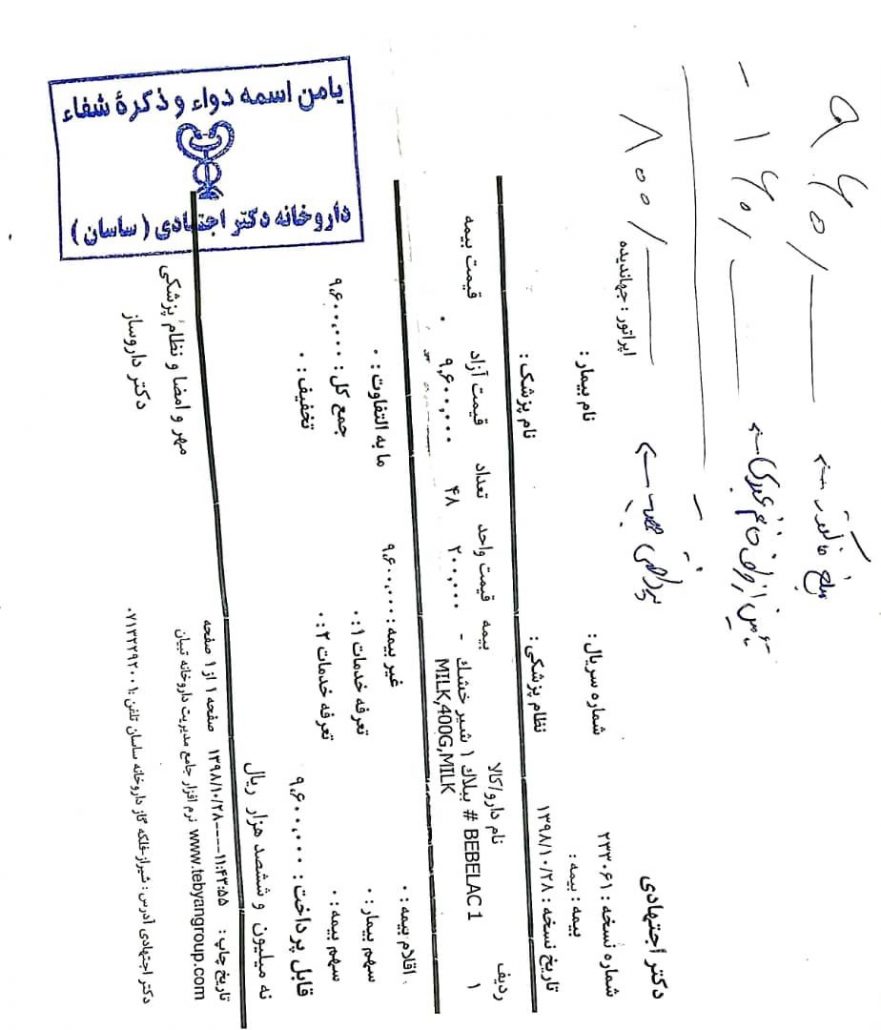 دکتر اجتهادی
شماره نسخه : ۲۳۳۰۶۱
بیمه : بیمه :
تاریخ نسخه : ۱۳۹۸/۱۰/۲۸
شماره سریال :
نظام پزشکی :
نام بیمار :
نام پزشک :
اپراتور : جهاندیده
ردیف نام دارو/کالا بیمه قیمت واحد تعداد قیمت آزاد قیمت بیمه
۱ BEBELAC 1 # ببلاک ۱ شیر خشک - ۲۰۰,۰۰۰ ۴۸ ۹,۶۰۰,۰۰۰ ۰
MILK,400G,MILK
اقلام بیمه : ۰ غیر بیمه : ۹,۶۰۰,۰۰۰ ما به التفاوت : ۰
سهم بیمار : ۰ تعرفه خدمات ۱ : ۰ جمع کل : ۹,۶۰۰,۰۰۰
سهم بیمه : ۰ تعرفه خدمات ۲ : ۰ تخفیف : ۰
قابل پرداخت : ۹,۶۰۰,۰۰۰
نه میلیون و ششصد هزار ریال
تاریخ چاپ : ۱۳۹۸/۱۰/۲۸----۱۱:۴۳:۵۵ صفحه ۱ از ۱ صفحه
www.tebyangroup.com نرم افزار جامع مدیریت داروخانه تبیان
مهر و امضا و نظام پزشکی
دکتر داروساز
دکتر اجتهادی آدرس : شیراز-فلکه گاز داروخانه ساسان تلفن :۰۷۱۳۲۲۹۲۰۰۱
یامن اسمه دواء و ذکرهٔ شفاء
داروخانه دکتر اجتهادی ( ساسان )
مبلغ فاکتور ← ۹۶۰/
← ۱۶۰/ -
پرداختی ← ۸۰۰/